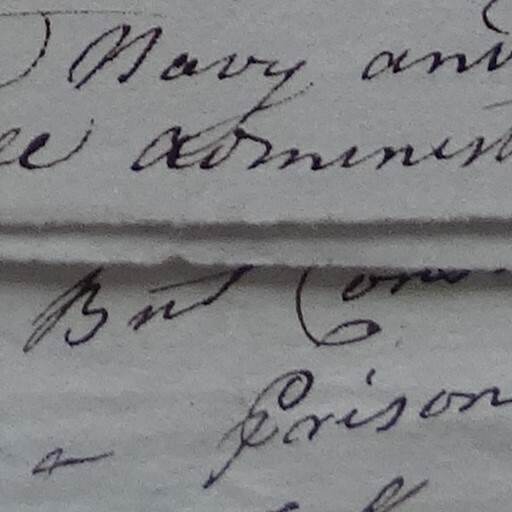 Navy and
administ
But Com
Prison